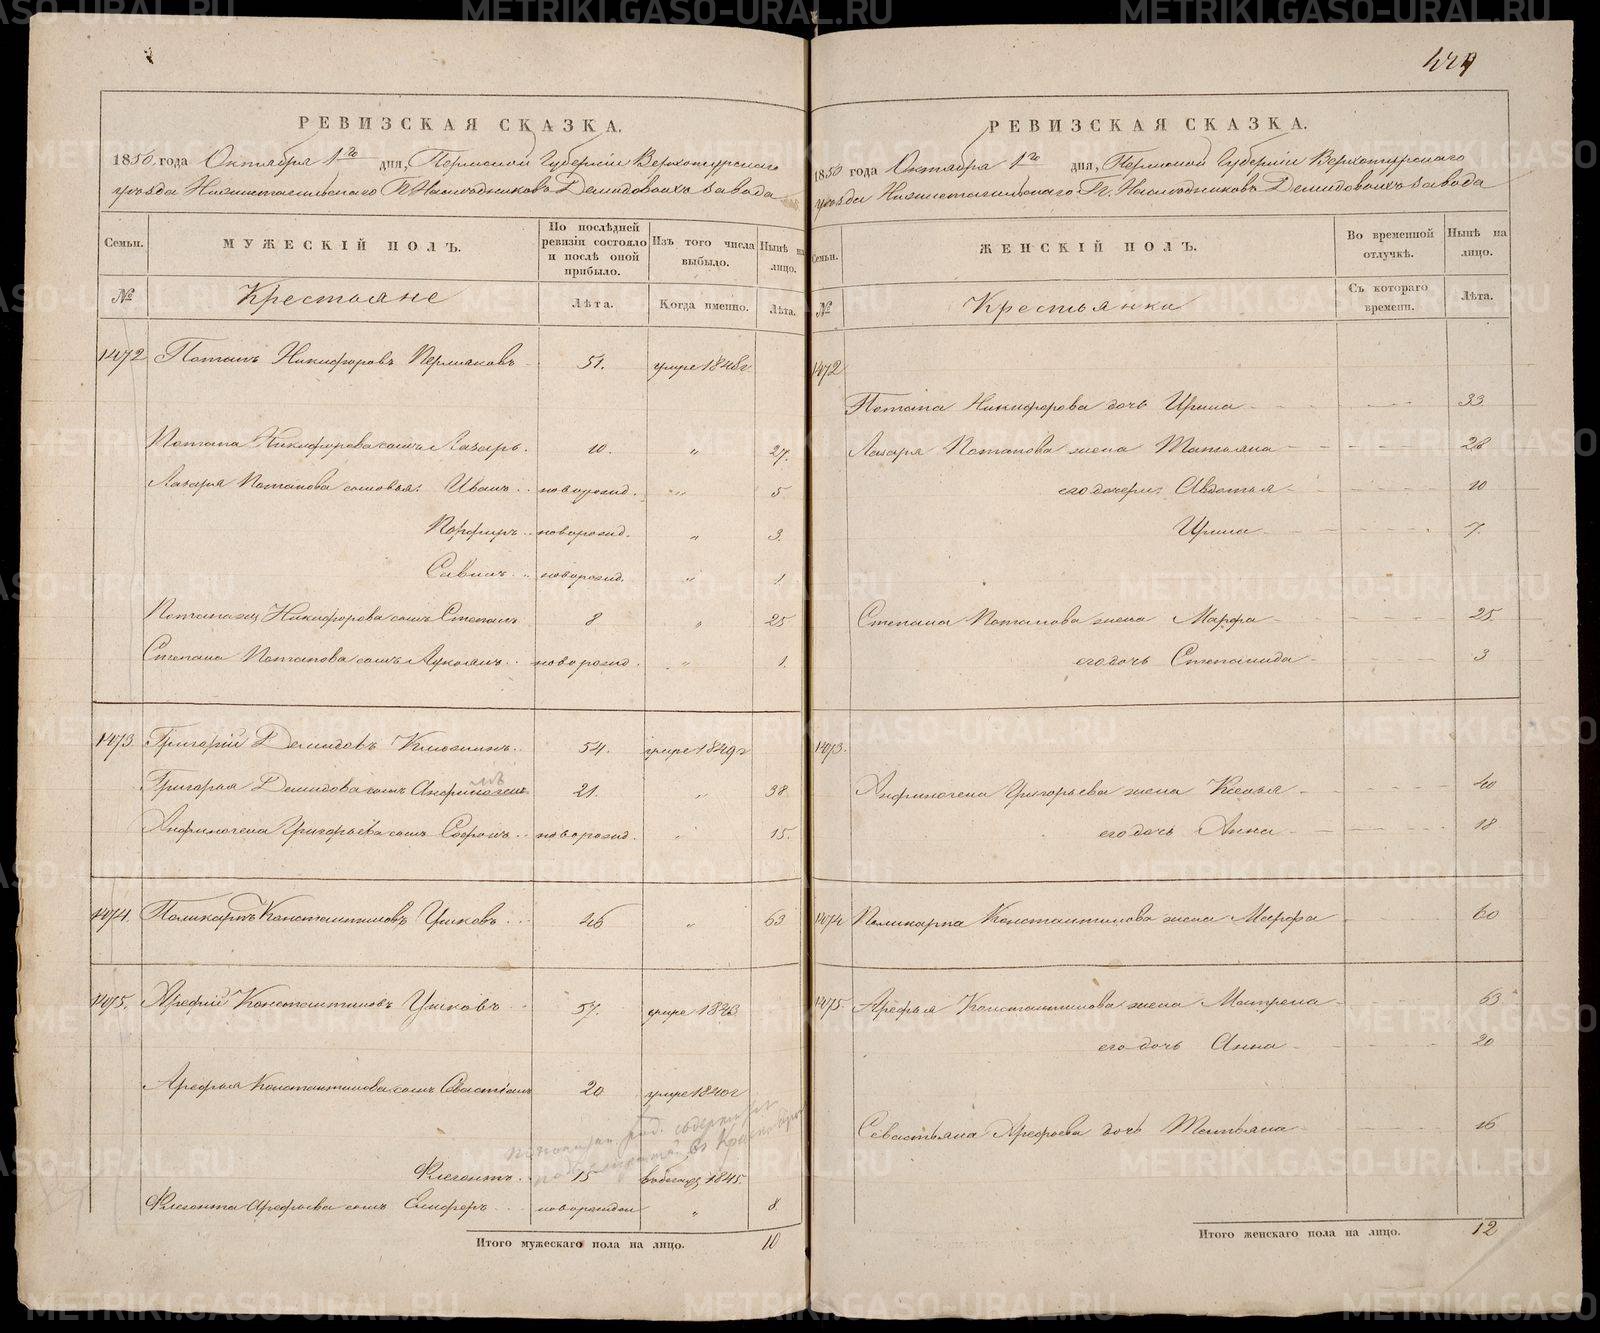 РЕВИЗСКАЯ СКАЗКА.
1850 года Октября 1го дня, Пермской Губерніи Верхотурскаго
уѣзда Нижнетагильскаго Гг. Наслѣдниковъ Демидовыхъ завода
Семьи.
МУЖЕСКІЙ ПОЛЪ.
По послѣдней
ревизіи состояло
и послѣ оной
прибыло.
Изъ того числа
выбыло.
Нынѣ на
лицо.
№
Крестьяне
Лѣта.
Когда именно.
Лѣта.
1472 Потапъ Никифоровъ Пермяковъ 51. умре 1848г
Потапа Никифорова сынъ Лазарь. 10. " 27.
Лазаря Потапова сыновья: Иванъ новорожд. " 5
Порфиръ новорожд. " 3.
Савинъ новорожд. " 1.
Потапа Никифорова сынъ Степанъ 8 " 25
Степана Потапова сынъ Лукоянъ новорожд. " 1.
1473 Григорій Демидовъ Клюжинъ. 54. умре 1849г
Григорья Демидова сынъ Анфиногенъ 21. " 38
Анфиногена Григорьева сынъ Софонъ новорожд. " 15.
1474. Поликарпъ Константиновъ Ушковъ 46 " 63
1475. Арефій Константиновъ Ушковъ 57. умре 1843
Арефья Константинова сынъ Севастіянъ 20 умре 1840г
Флегонтъ 15 въ бѣгахъ 1845.
Флегонта Арефьева сынъ Елиферъ новорожден " 8
Итого мужескаго пола на лицо. 10
429
РЕВИЗСКАЯ СКАЗКА.
1850 года Октября 1го дня, Пермской Губерніи Верхотурскаго
уѣзда Нижнетагильскаго Гг. Наслѣдниковъ Демидовыхъ завода
Семьи.
ЖЕНСКІЙ ПОЛЪ.
Во временной
отлучкѣ.
Нынѣ на
лицо.
№
Крестьянки
Съ котораго
времени.
Лѣта.
1472
Потапа Никифорова дочь Ирина 33.
Лазаря Потапова жена Татьяна 28
его дочери: Авдотья 10
Ирина 7.
Степана Потапова жена Марфа 25
его дочь Степанида 3
1473.
Анфиногена Григорьева жена Ксенья 40
его дочь Анна 18
1474 Поликарпа Константинова жена Марфа 60
1475. Арефья Константинова жена Матрена 63
его дочь Анна 20
Севастьяна Арефьева дочь Татьяна 16
Итого женскаго пола на лицо. 12
METRIKI.GASO-URAL.RU